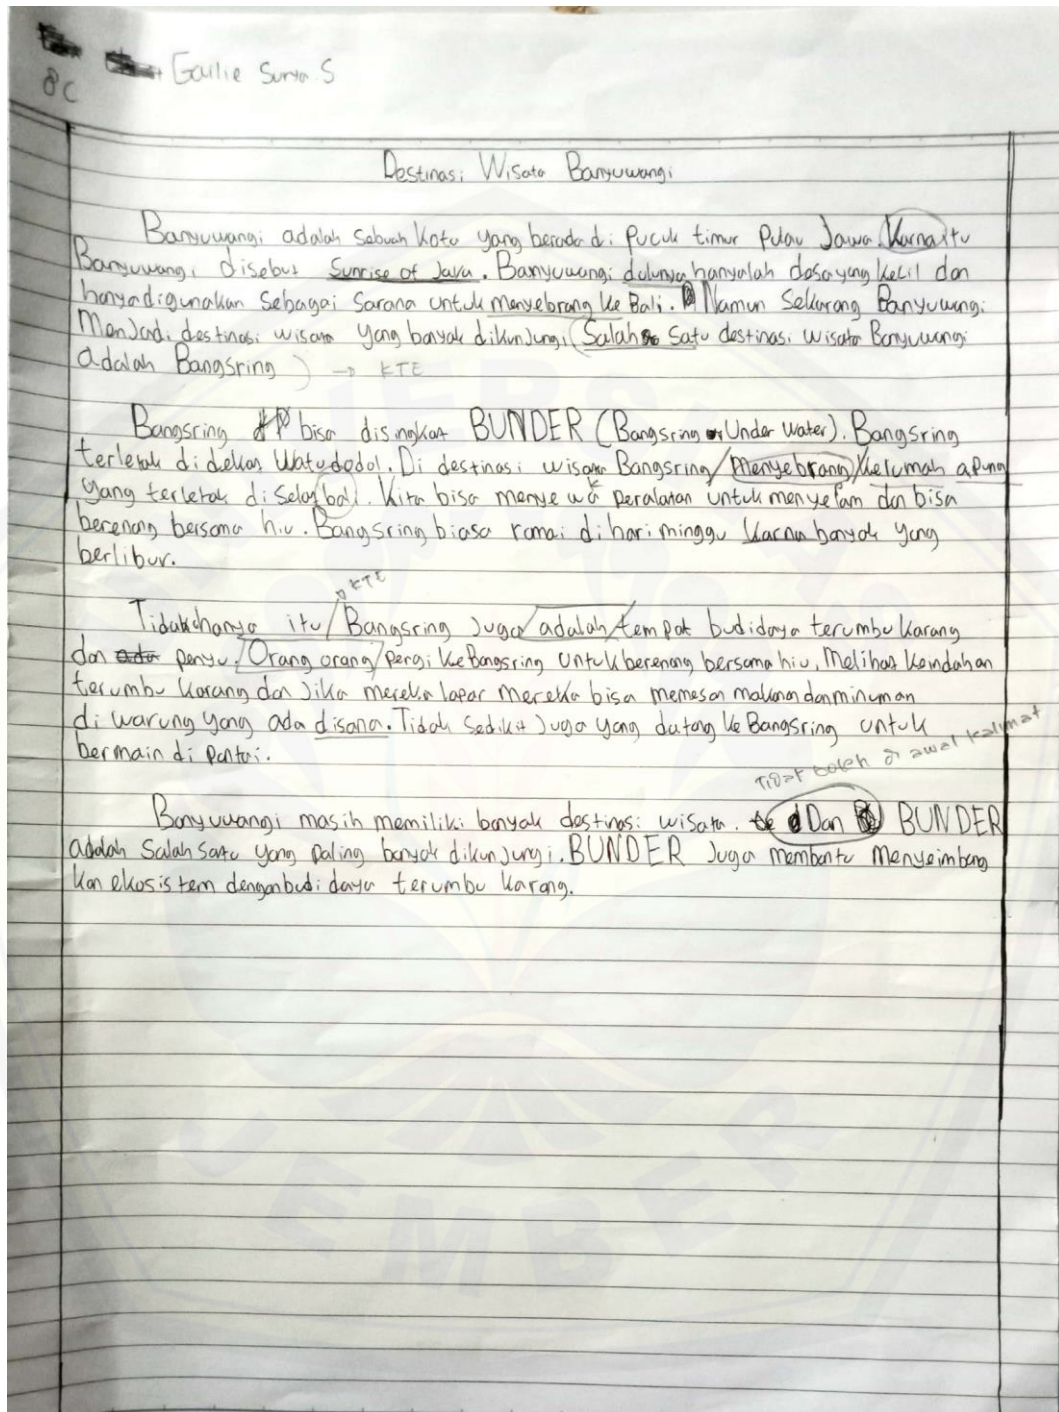 Gailie Surya.S
8C
Destinasi Wisata Banyuwangi
Banyuwangi adalah sebuah kota yang berada di pucuk timur Pulau Jawa. Karna itu
Banyuwangi disebut Sunrise of Java. Banyuwangi dulunya hanyalah desa yang kecil dan
hanya digunakan sebagai sarana untuk menyebrang ke Bali. Namun Sekarang Banyuwangi
Menjadi destinasi wisata yang banyak dikunjungi, Salah Satu destinasi wisata Banyuwangi
adalah Bangsring → KTE
Bangsring bisa disingkat BUNDER (Bangsring Under Water). Bangsring
terletak di dekat Watudodol. Di destinasi wisata Bangsring Menyebrang kerumah apung
yang terletak di Selat bali. Kita bisa menyewa peralatan untuk menyelam dan bisa
berenang bersama hiu. Bangsring biasa ramai di hari minggu karna banyak yang
berlibur.
KTE
Tidak hanya itu Bangsring juga adalah tempat budidaya terumbu karang
dan penyu. Orang orang pergi ke Bangsring untuk berenang bersama hiu, Melihat keindahan
terumbu karang dan jika mereka lapar mereka bisa memesan makanan dan minuman
di warung yang ada disana. Tidak sedikit juga yang datang ke Bangsring untuk
bermain di pantai.
Tidak boleh di awal kalimat
Banyuwangi masih memiliki banyak destinasi wisata. Dan BUNDER
adalah salah satu yang paling banyak dikunjungi. BUNDER juga membantu Menyeimbang
kan ekosistem dengan budi daya terumbu karang.
JEMBER